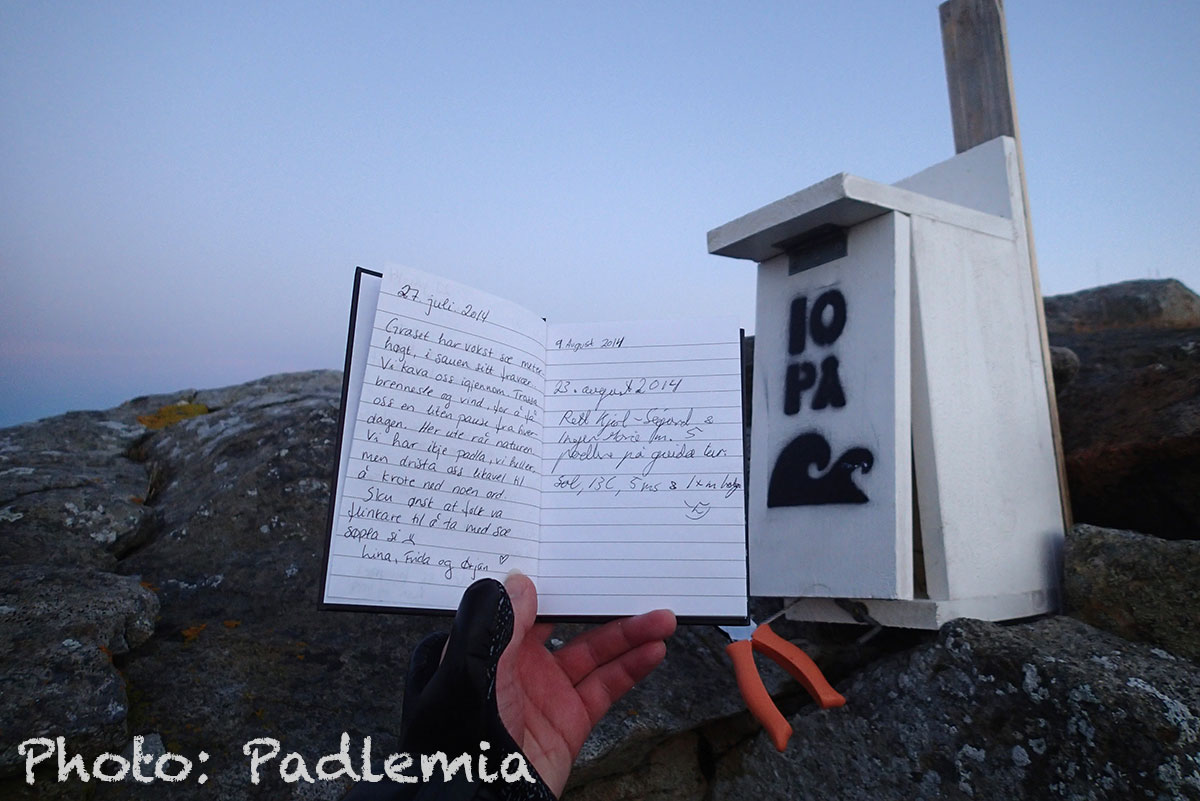 27. juli. 2014
Graset har vokst sæ meter
høgt, i sauen sitt fravær.
Vi kava oss igjennom. Trossa
brennesle og vind, for å få
oss en liten pause fra hver-
dagen. Her ute rår naturen.
Vi har ikje padla, vi heller,
men drista oss likavel til
å krote ned noen ord.
Sku ønst at folk va
flinkare til å ta med sæ
søppla si
Lina, Frida og Ørjan ♡
9 August 2014
23. august 2014
Rett Kjøl - &
Inger Marie m. 5
på guida tur.
Sol, 13C, 5ms & 1xm
10
PÅ
Photo: Padlemia